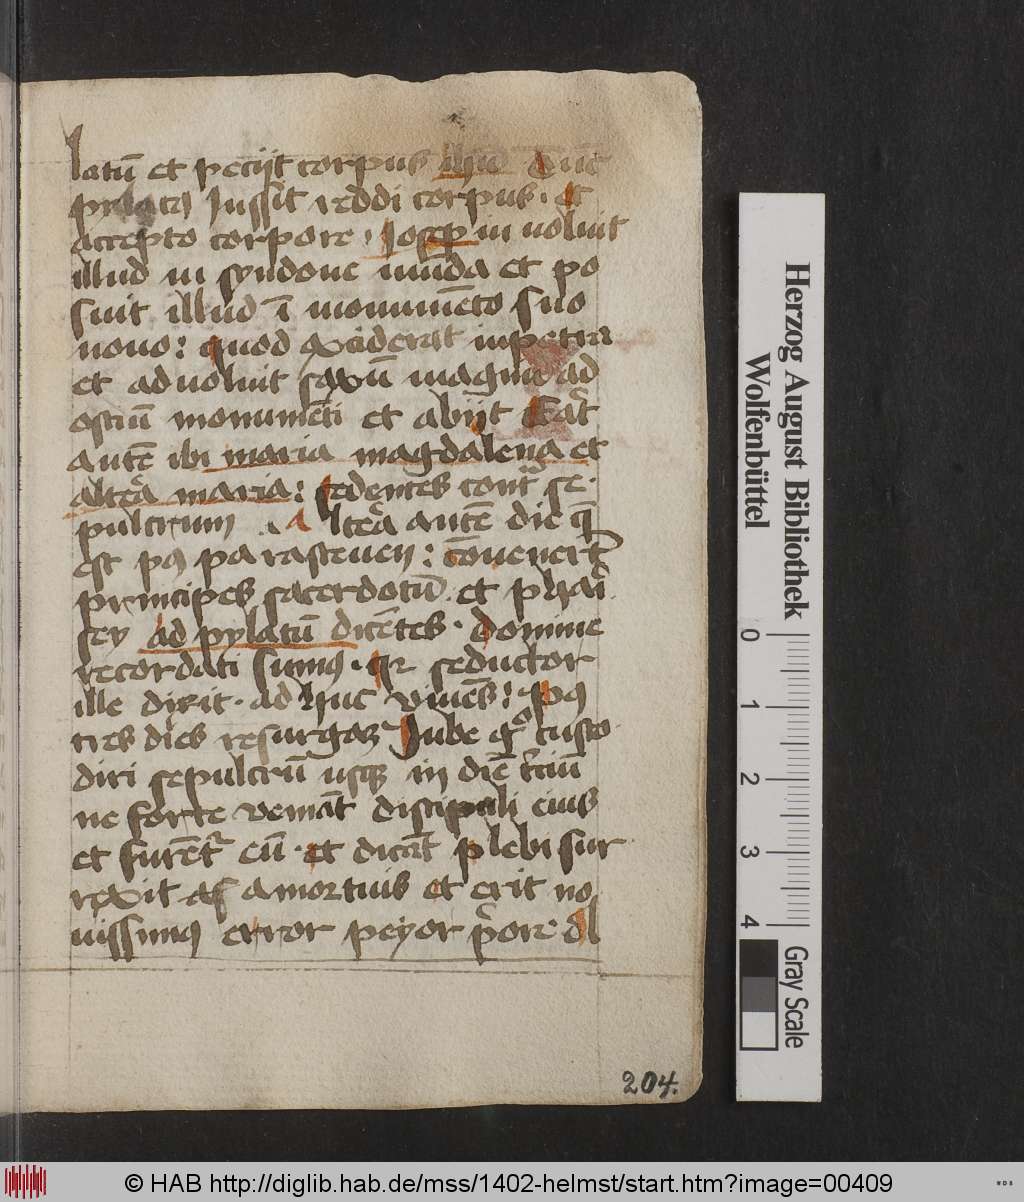 latū et pecijt corpus ihu Tūc
pylatꝯ Jussit reddi corpus · et
accepto corpore · Josep in uoluit
illud in syndone mūda et po
suit illud ī monumēto suo
nouo : quod exciderat in petra
et aduoluit saxū magnū ad
ostiū monumēti et abijt Erāt
autē ibi maria magdalena et
altera maria : sedentes contra se ·
pulcrum . Altera autē die q̄
est pꝯ parasceuen : cōuenerūt
principes sacerdotū et phari
sey ad pylatū dicētes · domine
recordati sumꝯ · qr seductor
ille dixit · ad huc viuēs : pꝯ
tres dies resurgaꝫ Jube gͦ custo
diri sepulcrū usqꝫ in diē t̉ciū
ne forte veniāt discipuli eius
et furētr eū · et dicāt plebi sur
rexit a mortuis et erit no
uissimꝯ error peyor p̉ore
204.
Herzog August Bibliothek
Wolfenbüttel
0 1 2 3 4 Gray Scale
© HAB http://diglib.hab.de/mss/1402-helmst/start.htm?image=00409